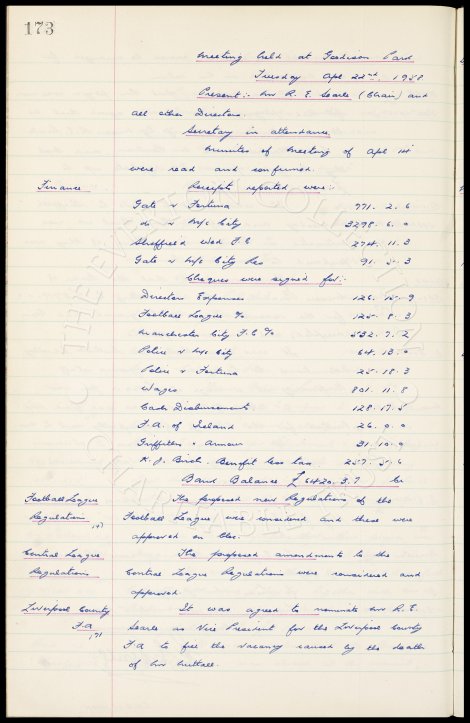 173
Meeting held at Goodison Park
Tuesday Apl 22nd, 1958
Present:- Mr R. E. Searle (Chair) and
all other Directors.
Secretary in attendance.
Minutes of meeting of Apl 1st
were read and confirmed.
Finance Receipts reported were:-
Gate v Fortuna 771. 2. 6
do v M/c City 3298. 6. 0
Sheffield Wed F.C 274. 11. 3
Gate v M/c City Res 91. 5. 3
Cheques were signed for:-
Directors Expenses 126. 15. 9
Football League % 125. 8. 3
Manchester City F.C % 532. 7. 2
Police v M/c City 64. 13. 0
Police v Fortuna 25. 18. 3
Wages 801. 11. 8
Cash Disbursements 128. 17. 5
F.A. of Ireland 26. 0. 0
Griffiths & Armour 31. 10. 9
K. J. Birch. Benefit less tax 257. 5. 6
Bank Balance £6420. 3. 7
Football League The proposed new Regulations of the
Regulations Football League were considered and these were
approved en bloc.
Central League The proposed amendments to the
Regulations Central League Regulations were considered and
approved.
Liverpool County It was agreed to nominate Mr R.E.
F.A Searle as Vice President for the Liverpool County
171 F.A to fill the vacancy caused by the death
of Mr Nuttall.
THE EVERTON COLLECTION
CHARITABLE